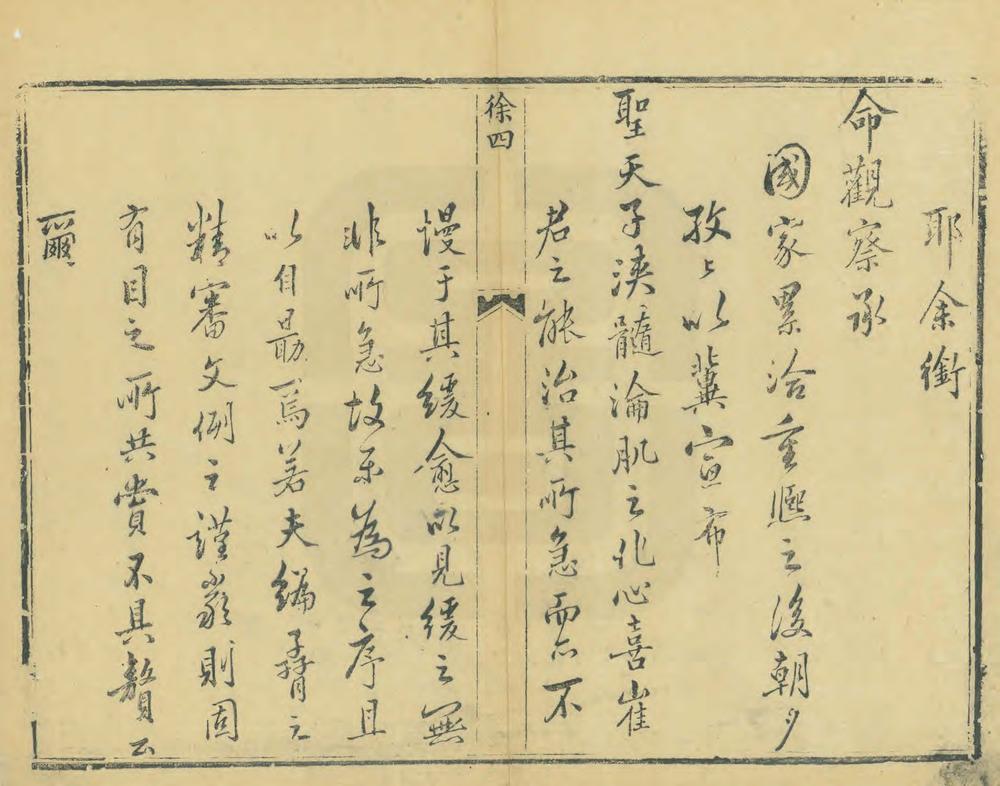 耶余銜
命觀察承
國家累洽重熙之後朝夕
孜孜以冀宣布
聖天子浹髓淪肌之化心喜崔
君之能治其所急而亦不
徐四
慢于其緩愈以見緩之無
非所急故樂為之序且
以自勗焉若夫編膌之
精審文例之謹嚴則固
有目之所共賞不具贅云
爾